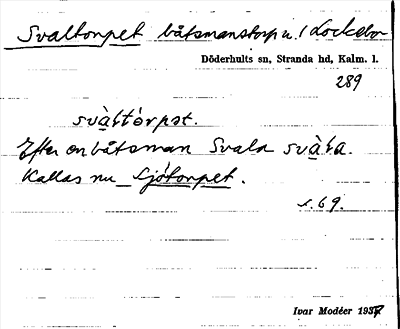 Svaltorpet båtsmanstorp u. Lockebo
Döderhults sn, Stranda hd, Kalm. l.
289
svàltórpət.
Efter en båtsman Svala svàla.
Kallas nu Sjötorpet.
s. 69.
Ivar Modéer 1937